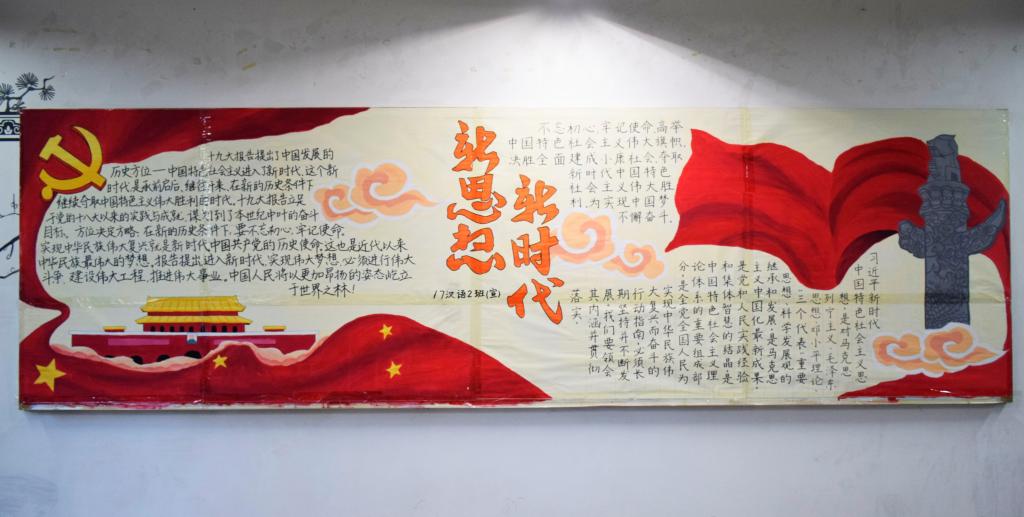 十九大报告提出了中国发展的
历史方位—中国特色社会主义进入了新时代.这个新
时代是承前启后,继往开来.在新的历史条件下
继续夺取中国特色主义伟大胜利的时代.十九大报告立足
于党的十八大以来的实践与成就,谋划到了本世纪中叶的奋斗
目标、方位决定方略.在新的历史条件下,要不忘初心,牢记使命,
实现中华民族伟大复兴就是新时代中国共产党的历史使命,这也是近代以来
中华民族最伟大的梦想,报告提出进入新时代,实现伟大梦想,必须进行伟大
斗争,建设伟大工程,推进伟大事业.中国人民将以更加昂扬的姿态屹立
于世界之林!
新思想
新时代
17汉语2班(宣)
不忘初心,牢记使命,高举
中国特色社会主义伟大旗帜,
决胜全面建成小康社会,夺取
新时代中国特色
社会主义伟大胜
利,为实现中国梦
不懈奋斗.
习近平新时代
中国特色社会主义思
想,是对马克思
列宁主义、毛泽东
思想、邓小平理论
"三个代表"重要
思想、科学发展观的
继承和发展,是马克思
主义中国化最新成果,
是党和人民实践经验
和集体智慧的结晶是
中国特色社会主义理
论体系的重要组成部
分,是全党全国人民为
实现中华民族伟
大复兴而奋斗的
行动指南,必须长
期坚持并不断发
展,我们要领会
其内涵并贯彻
落实.